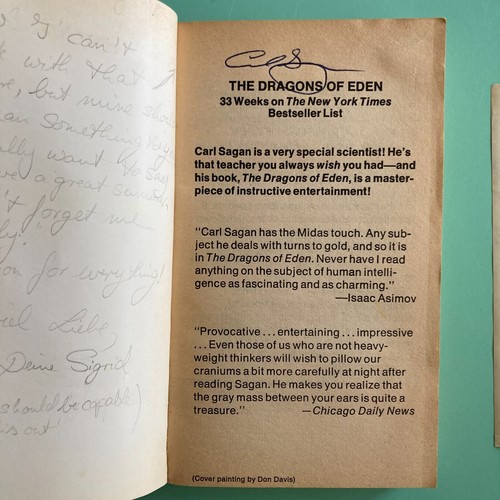 can't
with that
, but mine
something
want to say
a great
forget me
for everything!
Liebe
Deine Sigrid
should be capable)
out'
THE DRAGONS OF EDEN
33 Weeks on The New York Times
Bestseller List
Carl Sagan is a very special scientist! He's
that teacher you always wish you had—and
his book, The Dragons of Eden, is a master-
piece of instructive entertainment!
"Carl Sagan has the Midas touch. Any sub-
ject he deals with turns to gold, and so it is
in The Dragons of Eden. Never have I read
anything on the subject of human intelli-
gence as fascinating and as charming."
—Isaac Asimov
"Provocative . . . entertaining . . . impressive
. . . Even those of us who are not heavy-
weight thinkers will wish to pillow our
craniums a bit more carefully at night after
reading Sagan. He makes you realize that
the gray mass between your ears is quite a
treasure." —Chicago Daily News
(Cover painting by Don Davis)